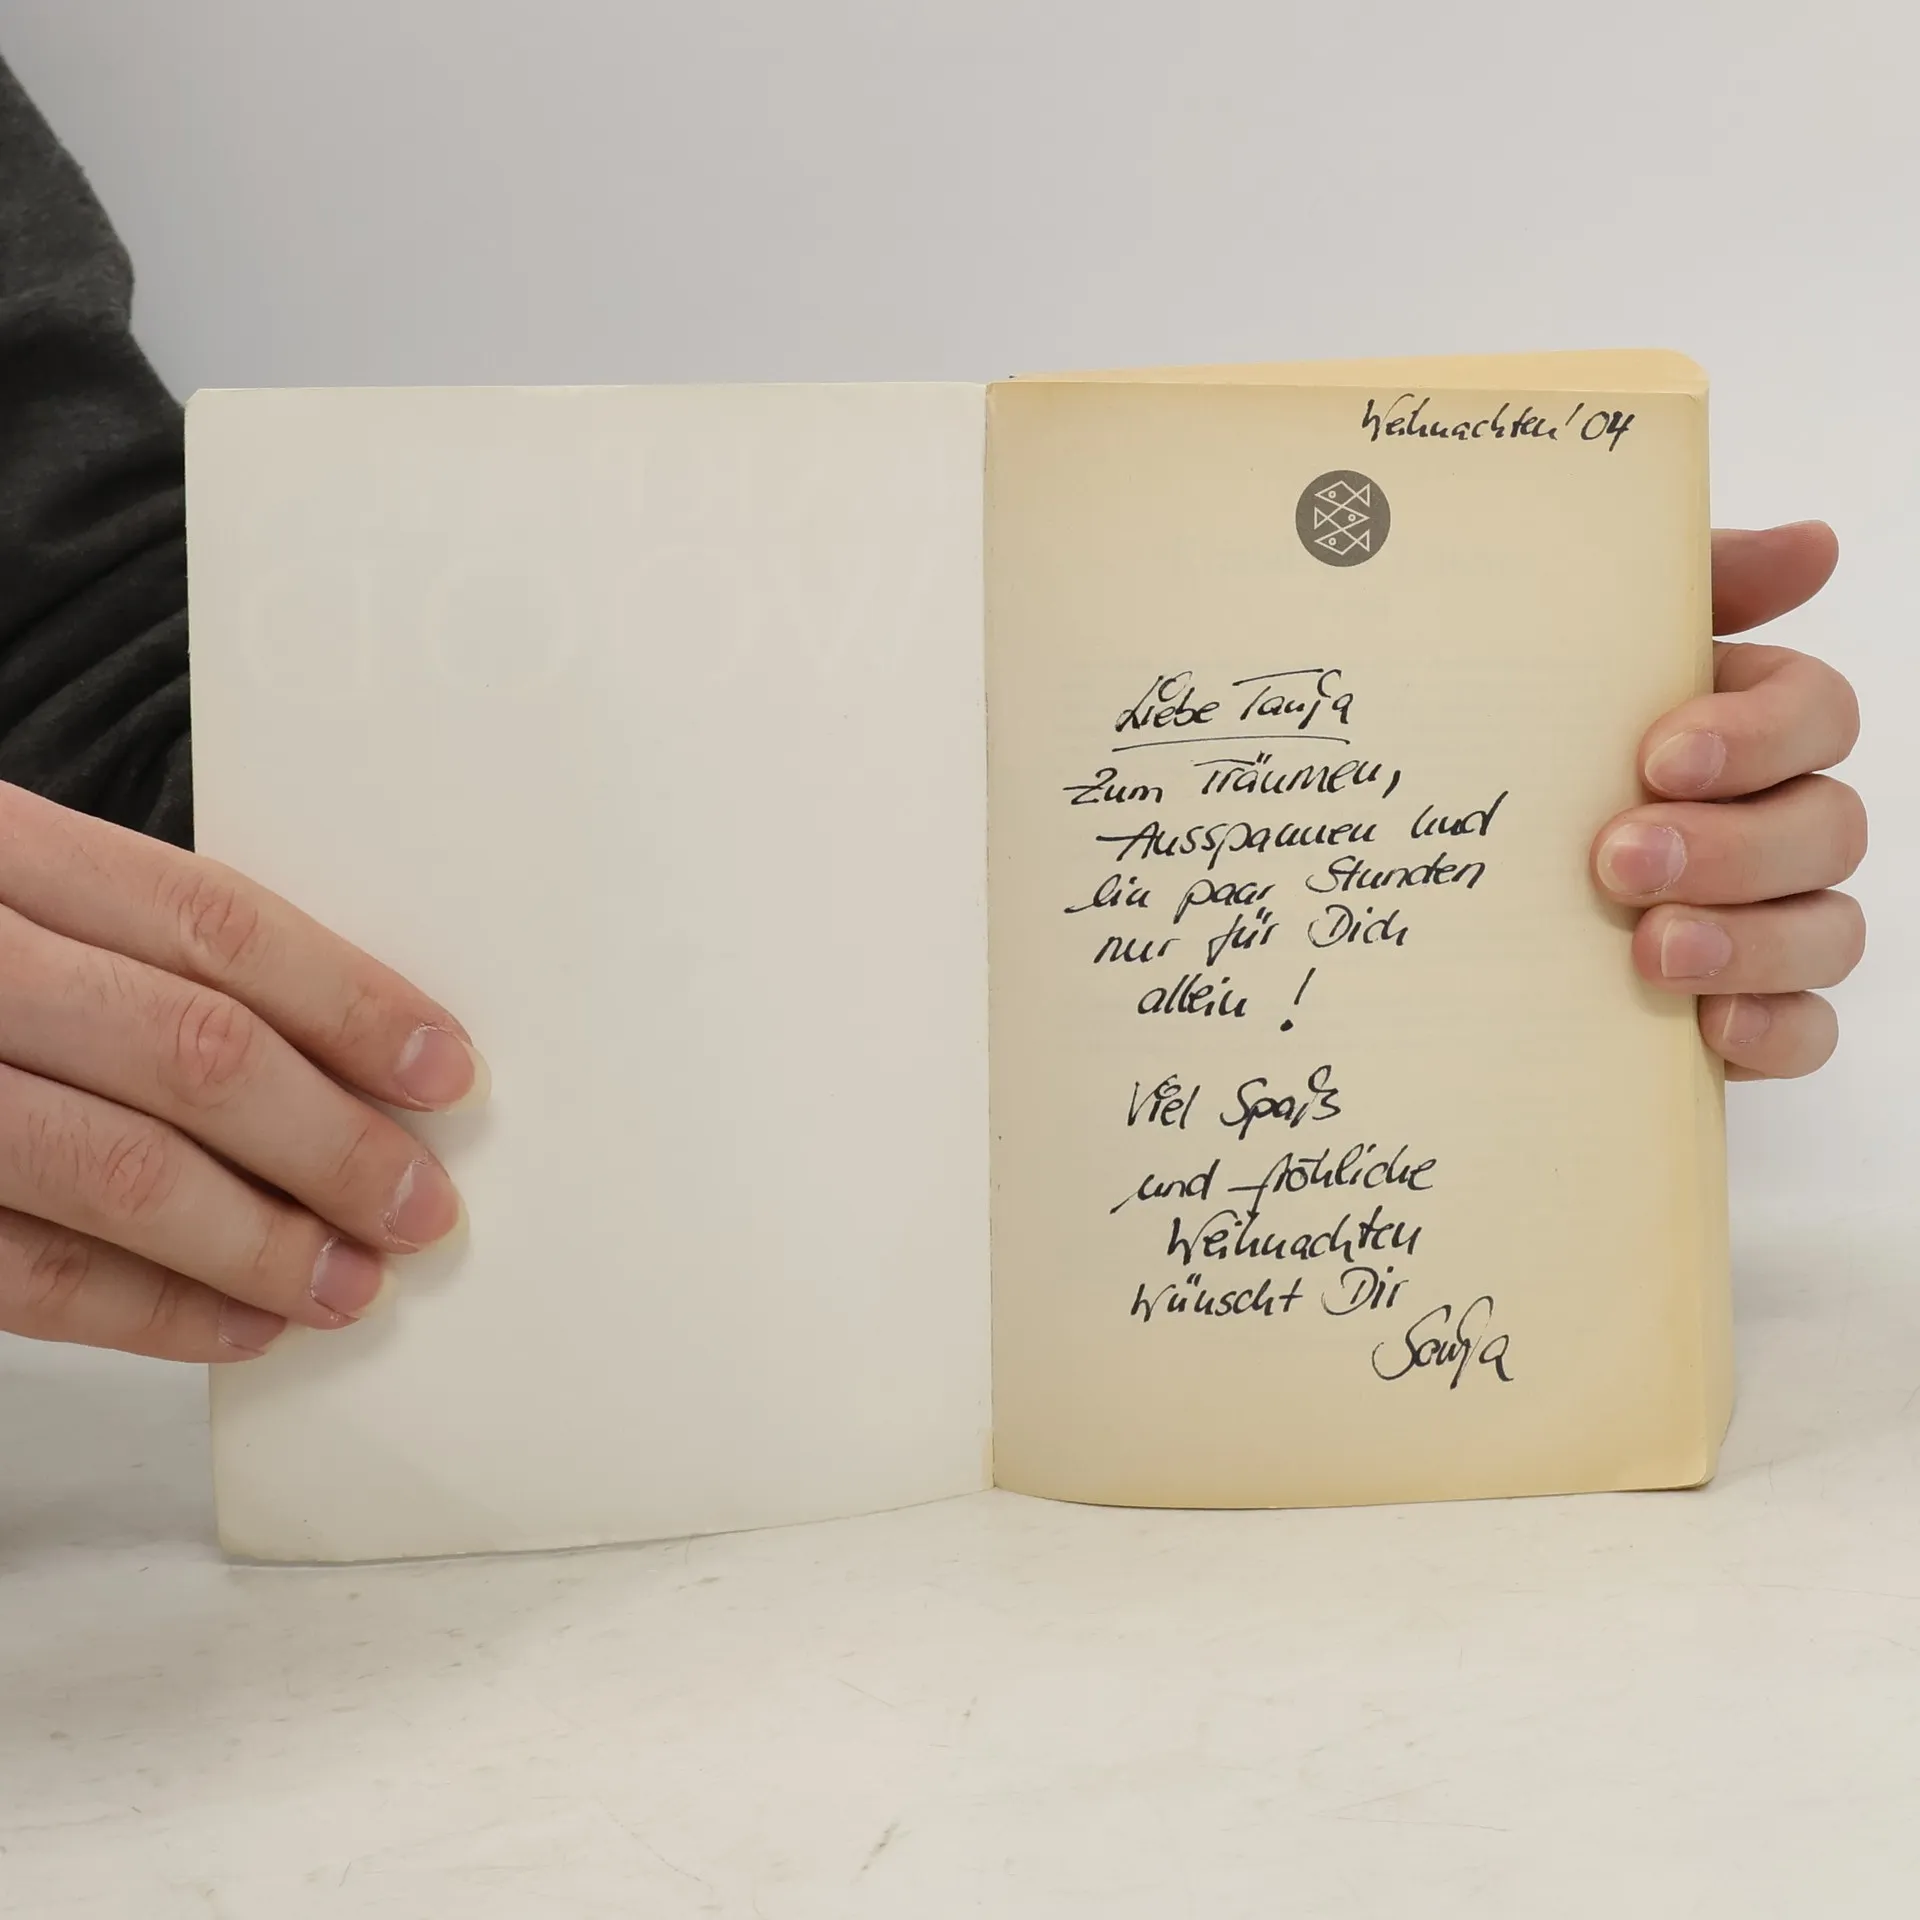 Weihnachten '04
Liebe Tanja
Zum Träumen,
Ausspannen und
ein paar Stunden
nur für Dich
allein !
Viel Spaß
und fröhliche
Weihnachten
wünscht Dir
Sonja